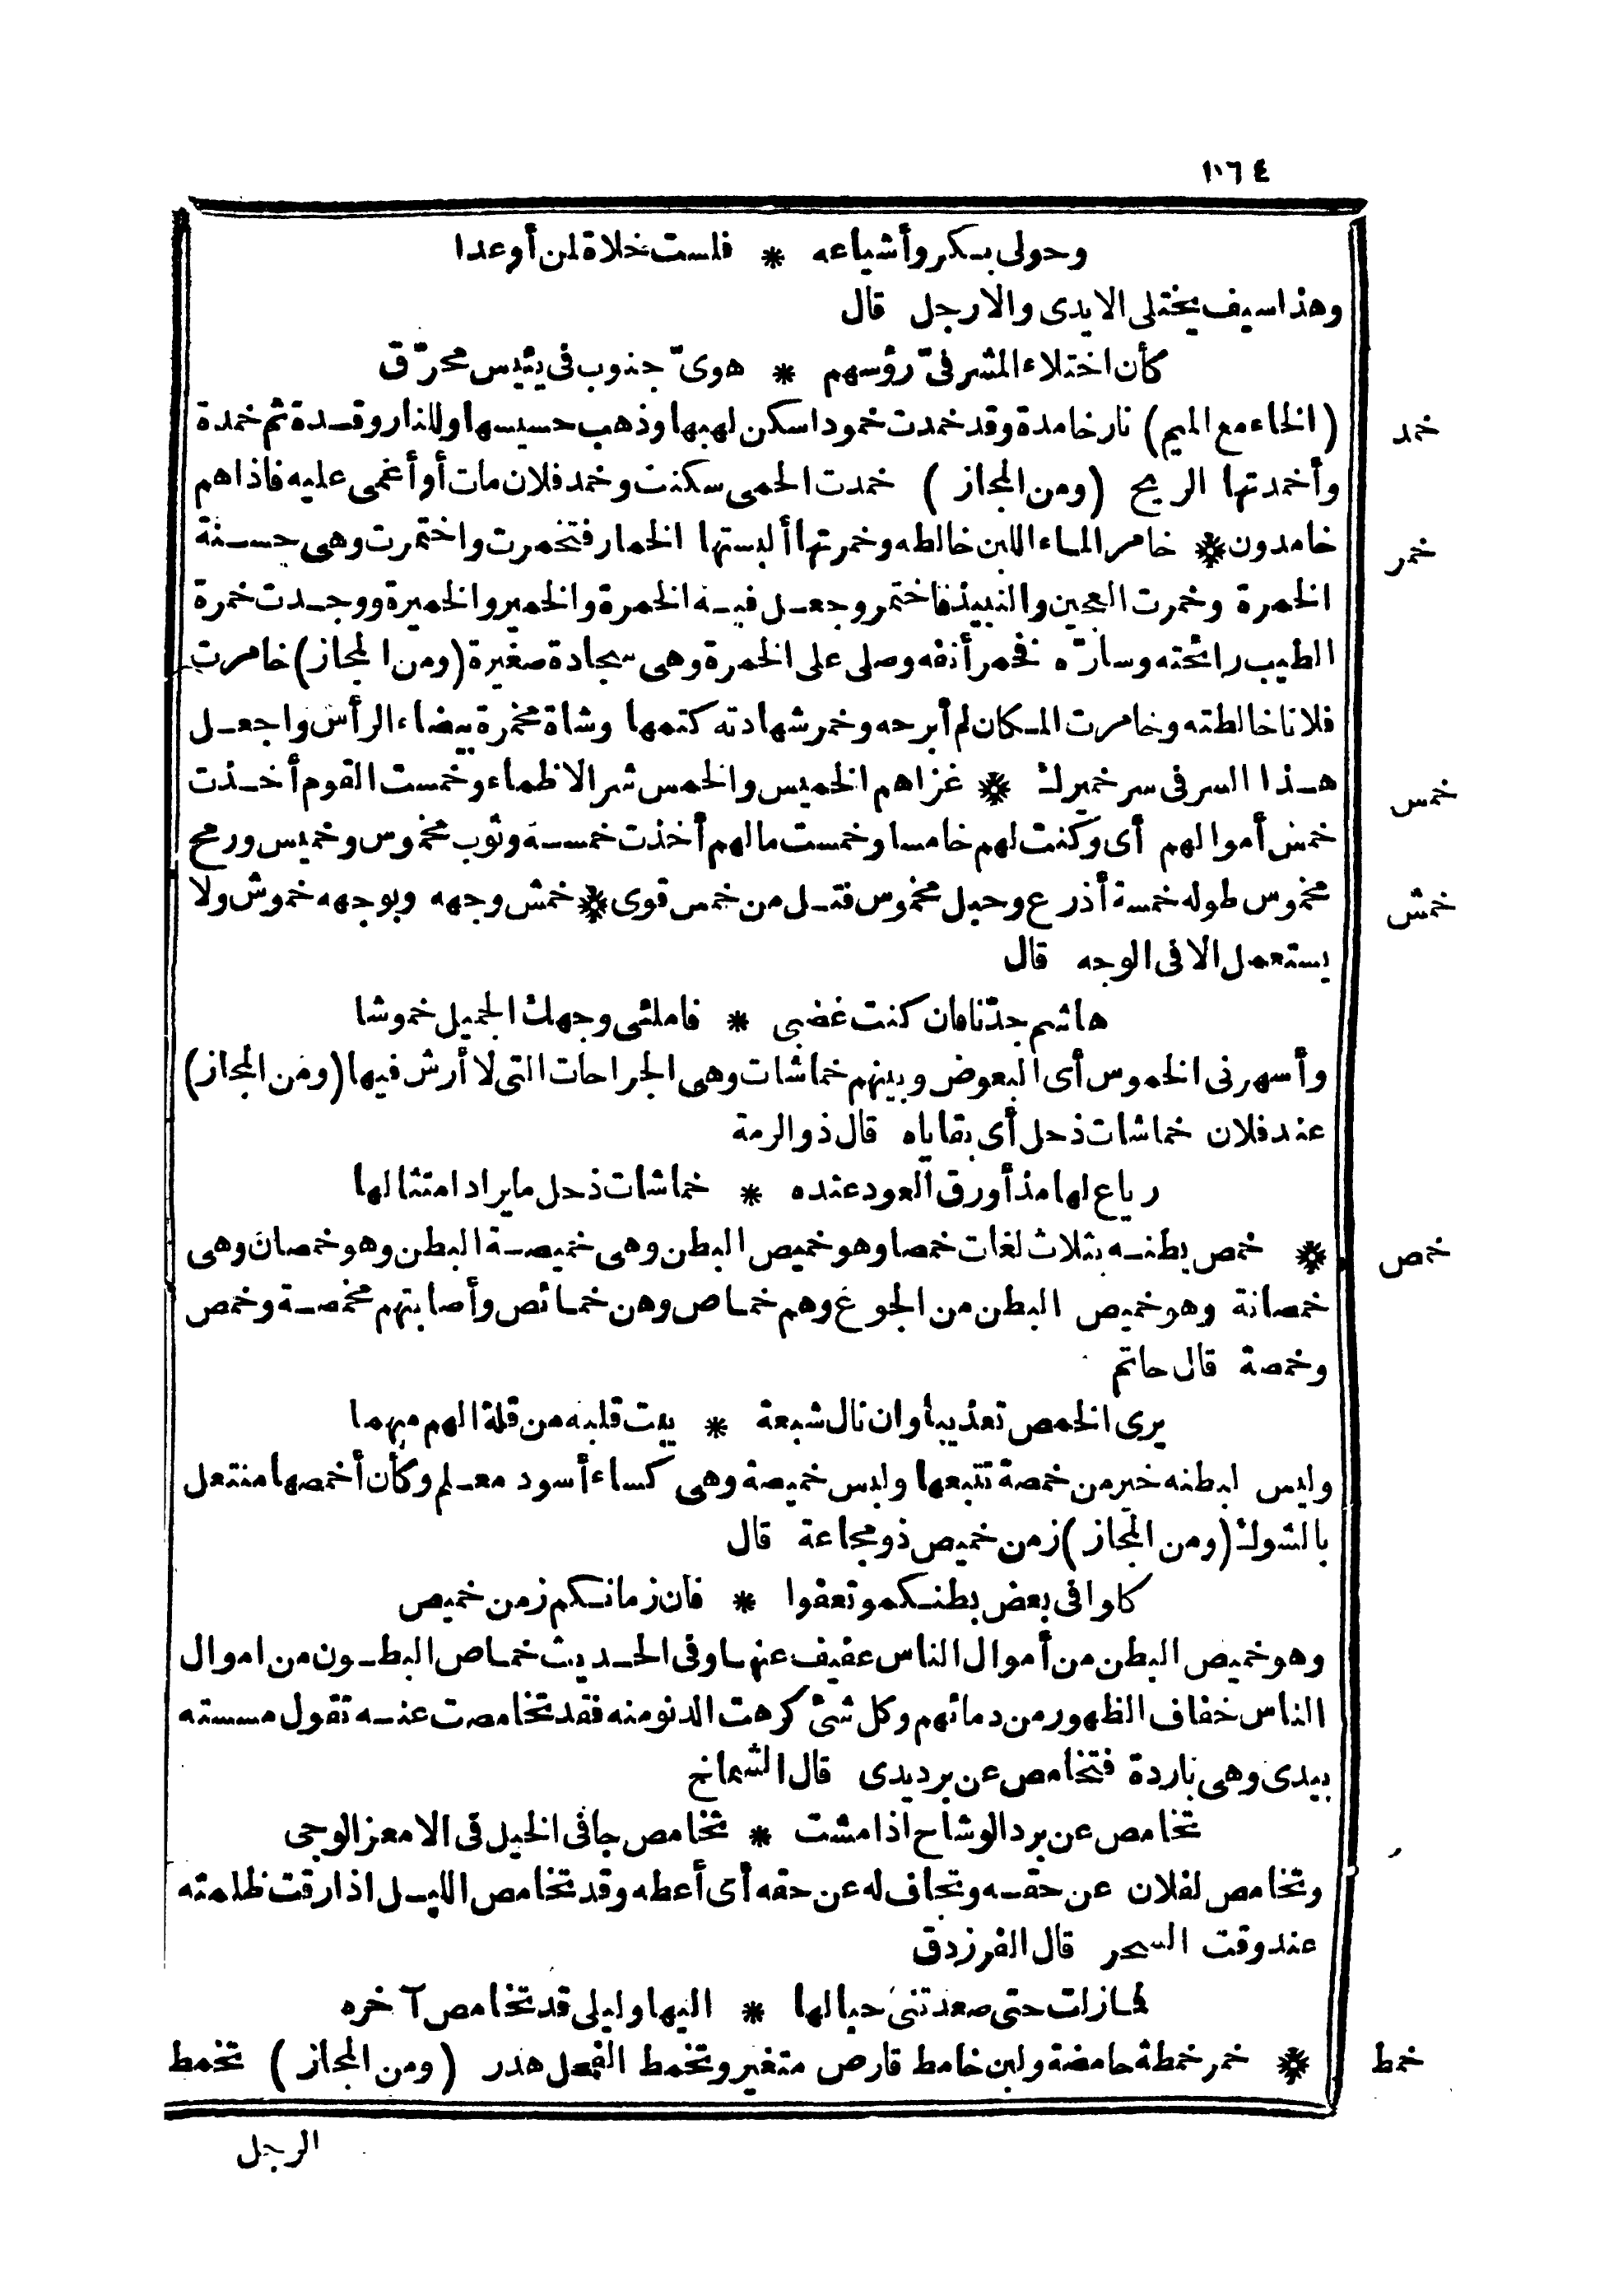 ١٦٤
وحولى بكر وأشياعه * فلست خلاة لمن أوعدا
وهذا سيف يختلى الايدى والارجل قال
كأن اختلاء المشرفىّ رؤسهم * هوىّ جنوب فى يبيس محرّق
خمد
(الخاء مع الميم) نار خامدة وقد خمدت خمودا سكن لهبها وذهب حسيسها وللنار وقدة ثم خمدة
وأخمدتها الريح (ومن المجاز) خمدت الحمى سكنت وخمد فلان مات أو أغمى عليه فاذا هم
خمر
خامدون * خامر الماء اللبن خالطه وخمرتها ألبستها الخمار فتخمرت واختمرت وهى حسنة
الخمرة وخمرت العجين والنبيذ فاختمر وجعل فيه الخمرة والخمير والخميرة ووجدت خمرة
الطيب رائحته وسارّه فخمر أنفه وصلى على الخمرة وهى سجادة صغيرة (ومن المجاز) خامرت
فلانا خالطته وخامرت المكان لم أبرحه وخمر شهادته كتمها وشاة مخمرة بيضاء الرأس واجعل
خمس
هذا السر فى سر خميرك * غزاهم الخميس والخمس شر الاظماء وخمست القوم أخذت
خمس أموالهم أى وكنت لهم خامسا وخمست مالهم أخذت خمسه وثوب مخموس وخميس ورمح
خمش
مخموس طوله خمسة أذرع وحبل مخموس فتل من خمس قوى * خمش وجهه وبوجهه خموش ولا
يستعمل الا فى الوجه قال
هاشم جدّنا فان كنت غضبى * فاملئى وجهك الجميل خموشا
وأسهرنى الخموس أى البعوض وبينهم خماشات وهى الجراحات التى لا أرش فيها (ومن المجاز)
عند فلان خماشات ذحل أى بقاياه قال ذو الرمة
رباع لها مذ أورق العود عنده * خماشات ذحل ما يراد امتثالها
خمص
* خمص بطنه بثلاث لغات خمصا وهو خميص البطن وهى خميصة البطن وهو خمصان وهى
خمصانة وهو خميص البطن من الجوع وهم خماص وهن خمائص وأصابتهم مخمصة وخمص
وخمصة قال حاتم
يرى الخمص تعذيبا وان نال شبعة * يبت قلبه من قلة الهم مبهما
وليس لبطنه خير من خمصة تتبعها ولبس خميصة وهى كساء أسود معلم وكأن أخمصها منتعل
بالشوك (ومن المجاز) زمن خميص ذو مجاعة قال
كلوا فى بعض بطنكمو تعفوا * فان زمانكم زمن خميص
وهو خميص البطن من أموال الناس عفيف عنها وفى الحديث خماص البطون من اموال
الناس خفاف الظهور من دمائهم وكل شئ كرهت الدنو منه فقد تخامصت عنه تقول مسسته
بيدى وهى باردة فتخامص عن برد يدى قال الشماخ
تخامص عن برد الوشاح اذا مشت * تخامص جافى الخيل فى الامعز الوجى
وتخامص لفلان عن حقه وتجاف له عن حقه أى أعطه وقد تخامص الليل اذا رقت ظلمته
عند وقت السحر قال الفرزدق
فمازلت حتى صعدتنى حبالها * اليها وليلى قد تخامص آخره
خمط
* خمر خمطة حامضة ولبن خامط قارص متغير وتخمط الفحل هدر (ومن المجاز) تخمط
الرجل